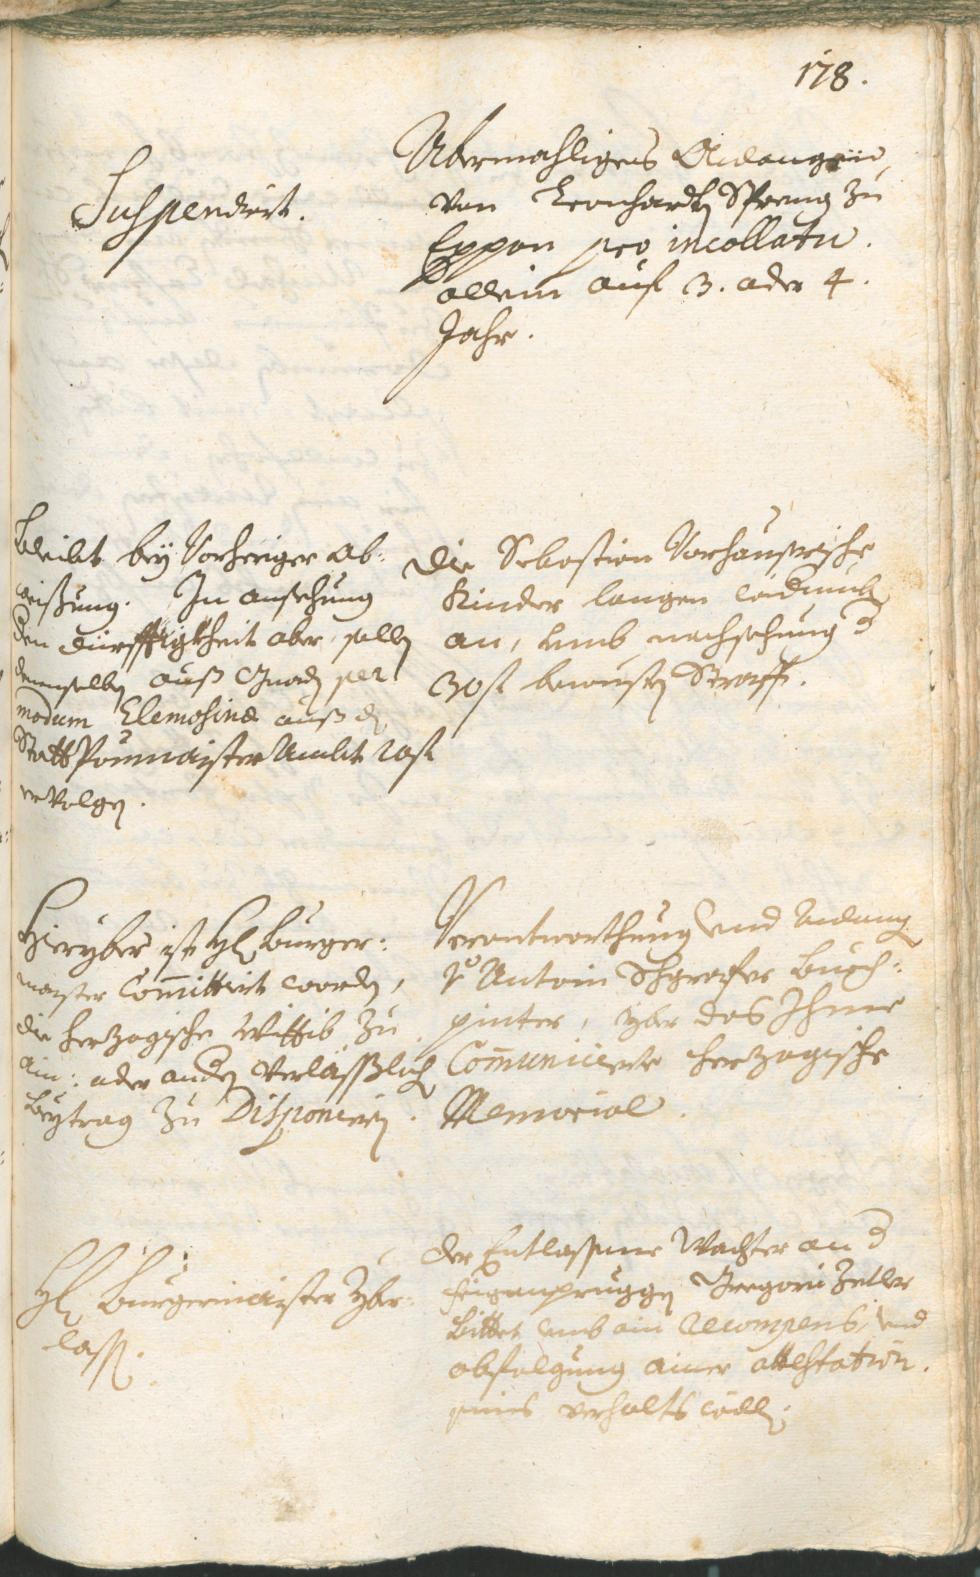 178.
Suspendirt.
Abermahliges Anlangen
von Leonhardt Spreng zu
Eppan pro incollatu.
allein auf 3. oder 4.
Jahr.
Bleibt bey Vorheriger ab-
weißung. In ansehung
den dürfftigkheit aber, solle
denenselben auß Gnad per
modum Elemosinæ auß d
Statt Paumaister Ambt 10 f
ervolgen.
Die Sebastian Vorhauserische
Kinder langen
an, umb nachsehung d
30 f bewusten Straff.
Hieryber ist H: Burger-
maister Committirt worden,
die herzogische Wittib zu
ain: oder anden verläßlich
Beytrag zu Disponieren.
Verantworthung und Anlang
Antoni Schgraffer Buch-
pinter, yber das Ihme
Communicierte herzogische
Memorial.
H: Burgermaister yber-
lass.
Der Entlassene Wachter an d
Eisenpruggen Gregori Zeller
Bittet umb ain recompens, und
abfolgung ainer attestation
seines verhalts